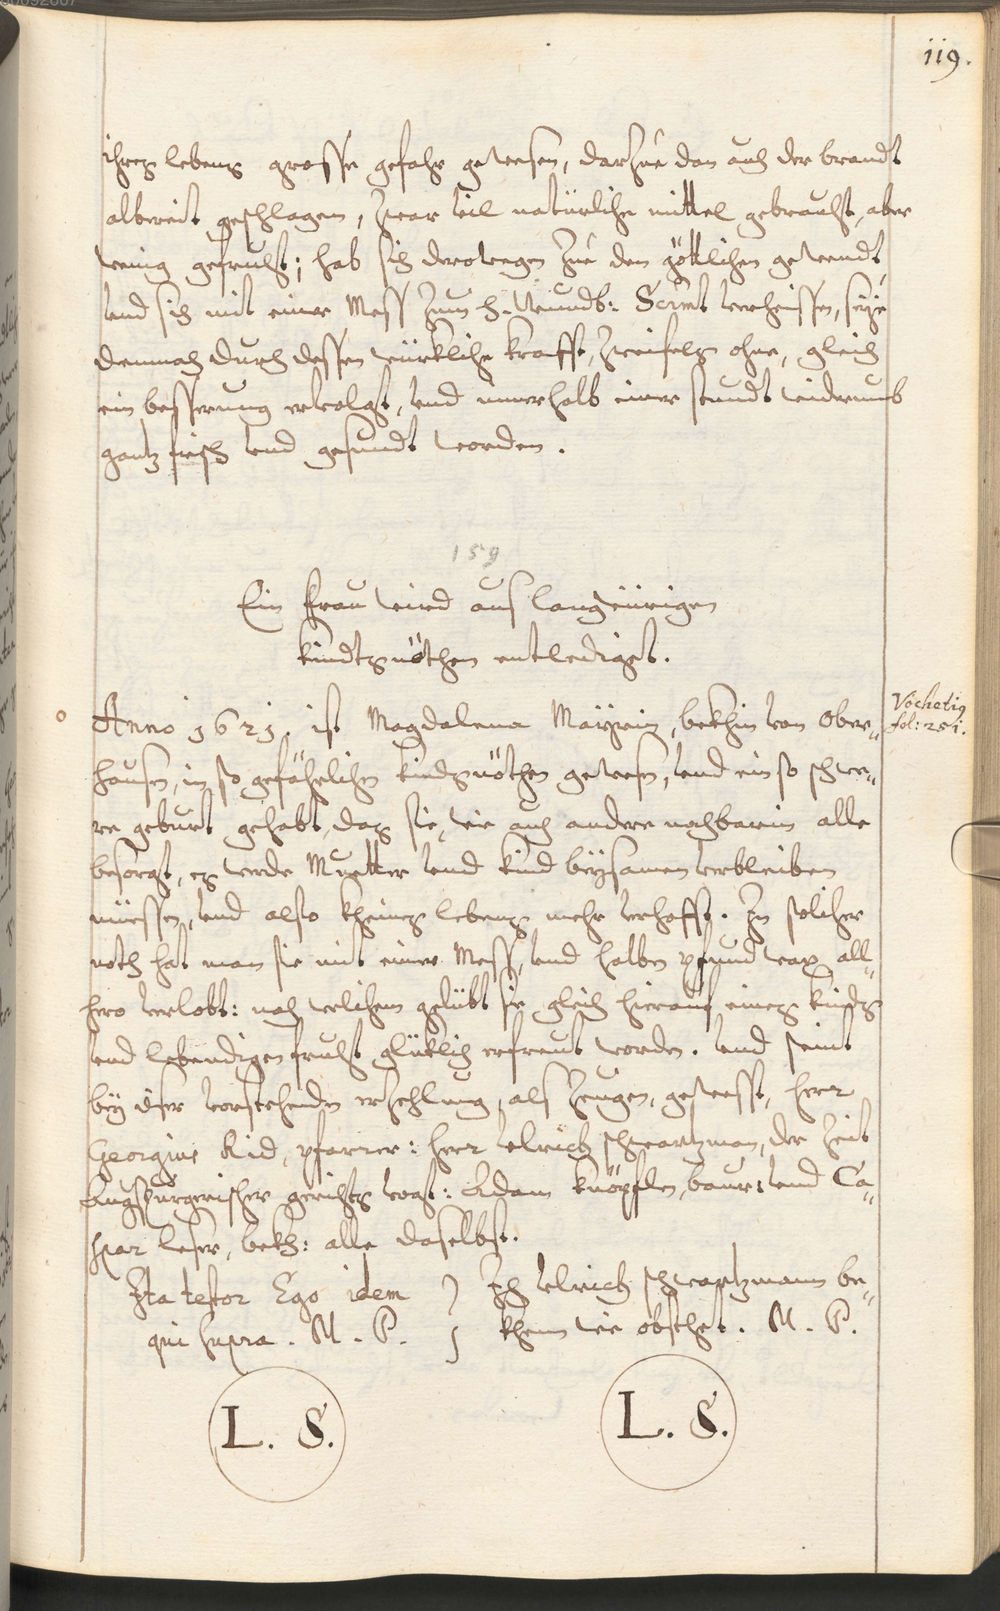 119.
ihres lebens grosse gefahr gewesen, darzue dan auch der brandt
albereit geschlagen, zwar vil natürliche mittel gebraucht, aber
wenig gefrucht; hab sich derowegen zue den göttlichen gewendt,
vnd sich mit einer Mess zum h. Wunderb: Scrmt verheissen, seye
demnach durch dessen würkliche krafft, zweifels ohne, gleich
ein besserung ervolgt, vnd innerhalb einer stundt widerumb
gantz frisch vnd gesundt worden.
159
Ein frau wird aus langwürigen
kindtsnöthen entlediget.
Anno 1621. ist Magdalena Mayrin, bekhin von Ober-
Vöchetig
fol: 251.
hausen, in so gefährlichen kindsnöthen gewesen, vnd ein so schwe-
re geburt gehabt, das sie, wie auch andere nachbarin alle
besorgt, es werde Muetter vnd kind beysamen verbleiben
müessen, vnd also kheines lebens mehr verhofft. In solcher
noth hat man sie mit einer Mess, vnd halben pfund wax all-
hero verlobt: nach welichem gelübt sie gleich hierauf eines kinds
vnd lebendigen frucht glüklich erfreut worden. vnd seint
bey diser vorstehenden erzehlung, als zeugen, gewesst, herr
Georgius Rid, pfarrer: herr Vlrich schwartzman, der zeit
Augspurgerischer gerichts vogt: Adam knöpfflen, baur: vnd Ca-
spar leser, bekh: alle daselbst.
Ita testor Ego idem } Ich Vlrich schwartzmann be-
qui supra. M. P. } khenn wie obsthet. M. P.
L. S. L. S.